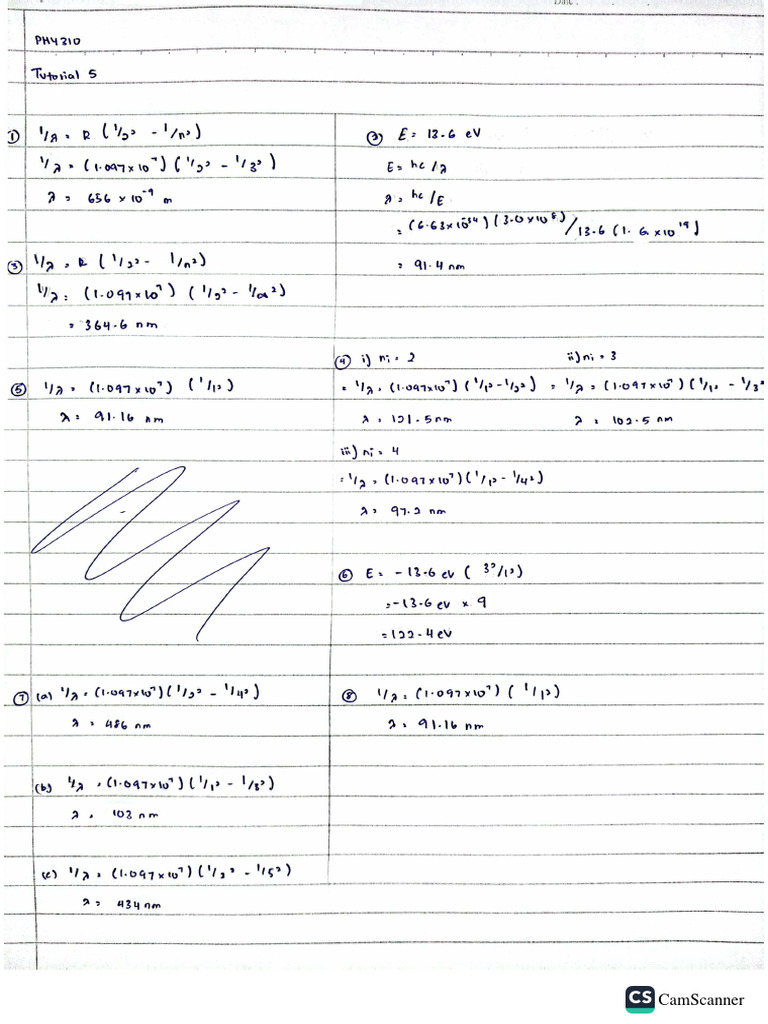 PHY310
Tutorial 5
① 1/λ = R (1/2² - 1/n²)
1/λ = (1.097x10⁷) (1/2² - 1/3²)
λ = 656 x 10⁻⁹ m
② E = 13.6 eV
E = hc/λ
λ = hc/E
= (6.63x10⁻³⁴)(3.0x10⁸) / 13.6 (1.6x10¹⁹)
= 91.4 nm
③ 1/λ = R (1/2² - 1/n²)
1/λ = (1.097x10⁷) (1/2² - 1/∞²)
= 364.6 nm
④ i) ni = 2
= 1/λ = (1.097x10⁷)(1/1² - 1/2²)
λ = 121.5 nm
ii) ni = 3
= 1/λ = (1.097x10⁷)(1/1² - 1/3²
λ = 102.5 nm
iii) ni = 4
= 1/λ = (1.097x10⁷)(1/1² - 1/4²)
λ = 97.2 nm
⑤ 1/λ = (1.097x10⁷) (1/1²)
λ = 91.16 nm
⑥ E = -13.6 eV (3²/1²)
= -13.6 eV x 9
= 122.4 eV
⑦ (a) 1/λ = (1.097x10⁷)(1/2² - 1/4²)
λ = 486 nm
(b) 1/λ = (1.097x10⁷)(1/1² - 1/3²)
λ = 103 nm
(c) 1/λ = (1.097x10⁷)(1/2² - 1/5²)
λ = 434 nm
⑧ 1/λ = (1.097x10⁷) (1/1²)
λ = 91.16 nm
CS CamScanner